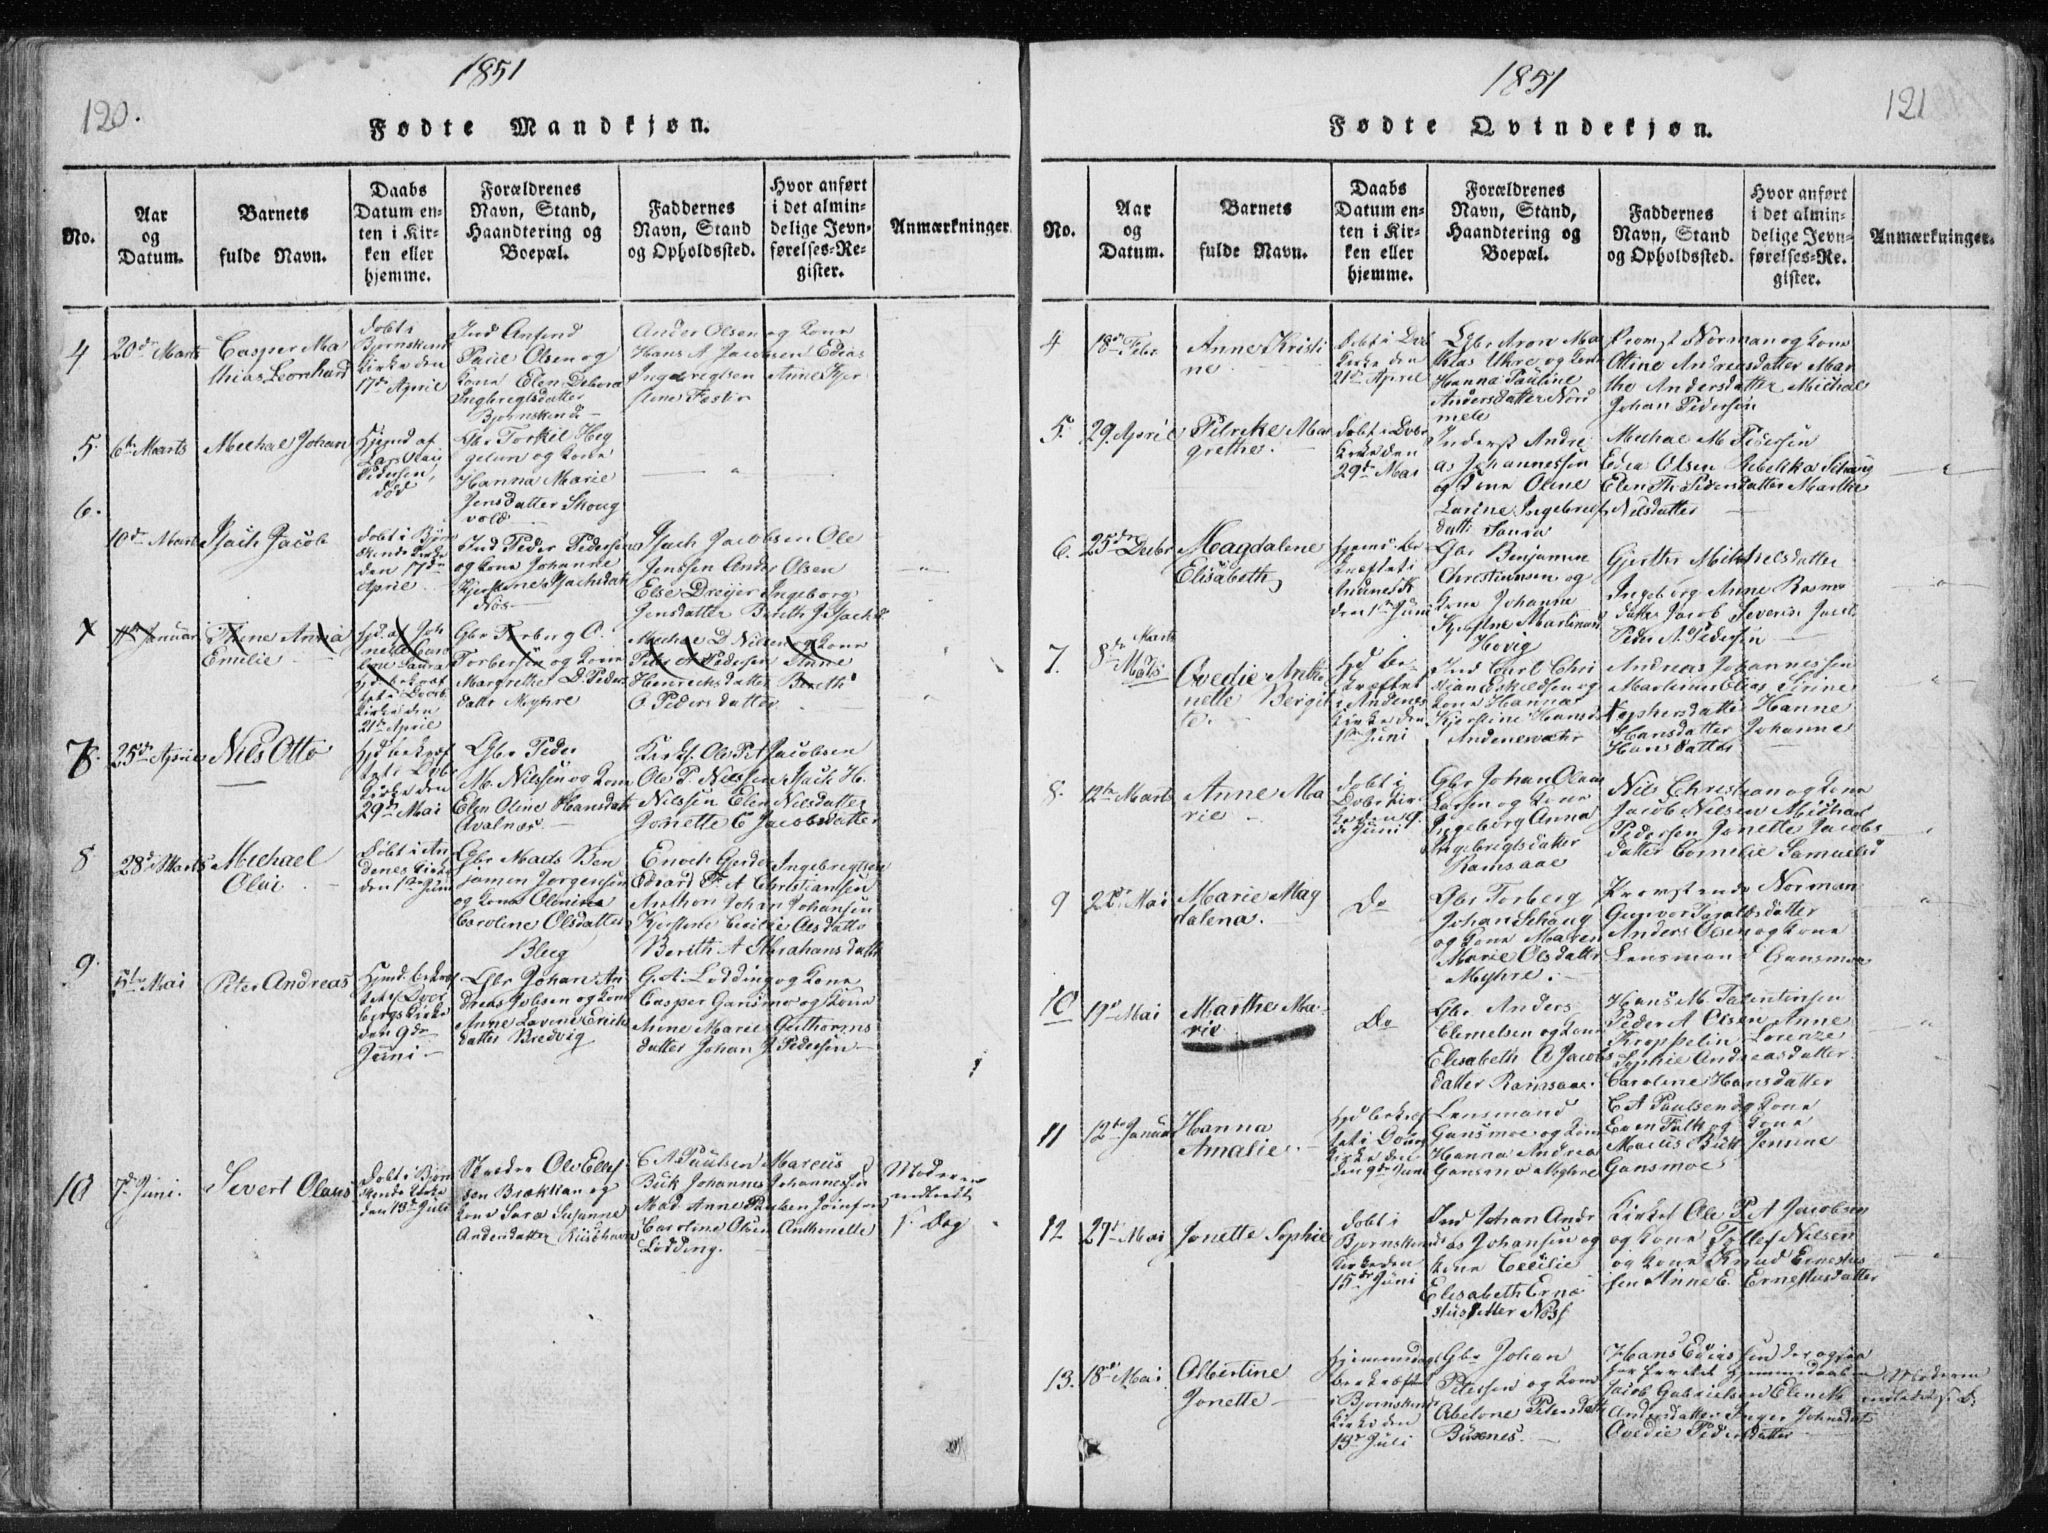 120.
1851
Fødte Mandkjøn.
No.
Aar
og
Datum.
Barnets
fulde Navn.
Daabs
Datum en-
ten i Kir-
ken eller
hjemme.
Forældrenes
Navn, Stand,
Haandtering og
Boepæl.
Faddernes
Navn, Stand
og Opholdssted.
Hvor anført
i det almin-
delige Jevn-
førelses-Re-
gister.
Anmærkninger
4
20de Marts
Casper Ma
thias Leonhard
Døbt i
Bjørnskind
Kirke den
17de April
Paul Olsen og
Kone Elen Debora
Ingbregtsdatter
Bjørnskind
Anders Olsen og Kone
Hans A Jacobsen Edias
Ingebregtsen Anne Kjer
stine
5
6te Marts
Michal Johan
Hjemd af
Lars Olai
Pedersen,
død
Gbr Torkil Heg
gelun og Kone
Hanna Marie
Jensdatter Skoug
vold
6.
10de Marts
Isach Jacob
døbt i Bjørn
skinds Kirke
den 17de
April
Ind Peder Pedersen
og Kone Johanne
Kjerstine Isachsdat
Nøs
Isach Jacobsen Ole
Jenssen Anders Olsen
Else Dreyer Ingeborg
Jensdatter Berith J Isachsd
7
11te Januar
Trine Anna
Emilie
21de April
Gbr Torberg O.
Torbersen og Kone
Margrethe D. Peders
datter Myhre
Michal D. Nilsen og Kone
Peter A Pedersen Anne
Henrichsdatter Berith
O. Pedersdatter
7
25de April
Nils Otto
Hjd bekræf
tet i Dvbr
Kirke den
29de Mai
Gbr Peder
M. Nilssen og Kone
Elen Oline Hansdatr
Avalnæs.
Kirks. Ole Pet Jacobsen
Ole P. Nilssen Isach H.
Nilssen Elen Nilsdatter
Jonette C Jacobsdatter
8
28de Marts
Michael
Olai
Døbt i An
denes Kirke
den 1ste Juni
Gbr Mads Ben
jamin Jørgensen
og Kone Olenina
Caroline Olsdatter
Bleg
Enoch Gjerder Ingebregtsen
Edvard F. A Christianssen
Anthon Johan Johansen
Kjerstine Cecilie Olsdatter
Berith A Abrahamsdatter
9.
5te Mai
Peter Andreas
Hjmd. bekræf
tet i Dver
bergs Kirke
den 9de
Juni
Gbr Johan An
dreas Jobsen og Kone
Anne Lavine Erick
datter Bredvig
G. A. Lødding og Kone
Casper Gansmo og Kone
Anne Marie Guthorms
datter Johan J. Pedersen
10
7de Juni.
Sivert Olaus
Døbt i Bjørn
skinds Kirke
den 13de Juli
Ole Ellef
sen Brækkan og
Kone Sara Susanne
Andersdatter Riisøhavn
C A Paulsen Marcus
Bük Johannes Johannessen
Mad Anne
Caroline Olsen Anthonette
Lødding.
Moderen
indledt
s. Dag
1851
121
Fødte Qvindekjøn.
No.
Aar
og
Datum.
Barnets
fulde Navn.
Daabs
Datum en-
ten i Kir-
ken eller
hjemme.
Forældrenes
Navn, Stand,
Haandtering og
Boepæl.
Faddernes
Navn, Stand
og Opholdssted.
Hvor anført
i det almin-
delige Jevn-
førelses-Re-
gister.
Anmærkninger.
4
18de Febr
Anne Kristi
ne
Døbt i Dvb
Kirke den
21de April
Gbr Aron Ma
thias Uhre og Kone
Hanna Pauline
Andersdatter Nord
mele
Provst Norman og Kone
Oline Andreasdatter Mar
the Andersdatter Michal
Johan Pedersen
5.
29 April
Pilreke Mar
grethe.
døbt i Dvbr
Kirke den
29de Mai
Inderst Andre
as Johannessen
og Kone Oline
Larine Ingebregt
datt: Saura
Michal M Pedersen
Edea Olsen Rebekka Schaug
Elen Th Pedersdatter Marthe
Nilsdatter
6.
25de Decbr
Magdalene
Elisabeth
hjems be
kræftet i
Andenes K
den 1ste Juni
Gbr Benjamin
Christiansen og
Kone Johanna
Kjerstine Martinusd
Høvig
Gjerther Michelsdatter
Ingeborg Anne Rasmus
datter Jacob Severin Jacobs
Peder A. Pedersen
7.
8de Marts
Ovedie Antho
nette Bergit
te.
Hjd be
kræftet
i Andenes
Kirke den
1ste Juni
Ind Carl Chri
stian Eskildsen og
Kone Hanna
Kjerstine Hansd
Andenesvær
Andreas Johannessen
Martinus Elias Sirine
Hanne
Hansdatter Johanne
Hansdatter
8.
12te Marts
Anne Ma
rie
Døbt i
Dvbr Kir
ke den 9
de Juni
Gbr Johan Olaus
Larsen og Kone
Ingeborg Anna
Ingebregtsdatter
Ramsaae
Nils Christian og Kone
Jacob Nilsen Michal
Pedersen Jonette Jacobs
datter Cornelie Samuelsd
9
22de Mai
Marie Mag
dalena.
Do
Gbr Torberg
Johan Schaug
og Kone Maren
Marie Olsdatter
Myhre.
Provst enke Norman
Gunvor Taraldsdatter
Anders Olsen og Kone
Lensmand Gansmoe
10
19de Mai
Marthe Ma-
rie
Do
Gbr. Anders
Clemetsen og Kone
Elisabeth A Jacobs
datter Ramsaae.
Hans M. Talentinsen
Peder A Olsen Anne
Kroppelin Lorenze
Sophie Andreasdatter
Caroline Hansdatter
11
12te Januar
Hanna
Amalie.
Hjd bekræf
tet i Dverb
Kirke den
den 9de Juni
Lensmand
Gansmoe og Kone
Hanna Andrea
Gansmo Myhre
C A Paulsen og Kone
Even Falk og Kone
Marcus Bük Jensine
Gansmoe
12
27de Mai
Jonette Sophie
Døbt i
Bjørnskinds
Kirke den
15de Juni
Ind Johan Andr
as Johansen og
Kone Cecilie
Elisabeth Erne
stusdatter Nøss
Kirkes Ole P. A Jacobsen
og Kone Tollef Nilsen
og Kone Knud Ernestus
sen Anne E. Ernestusdatter
13.
18de Mai
Albertine
Jonette
Hjemmedaab
bekræftet
i Bjørnskinds
Kirke den
13de Juli
Gbr Johan
Petersen og Kone
Abelone Petersdatt
Buxnes.
Hans Ediassen der ogsaa
har forrettet Hjemmedaaben
Jacob Gabrielsen Elen M
Andersdatter Inger Johnsdat
Ovedie Pedersdatter
Moderen
indledt s. D.